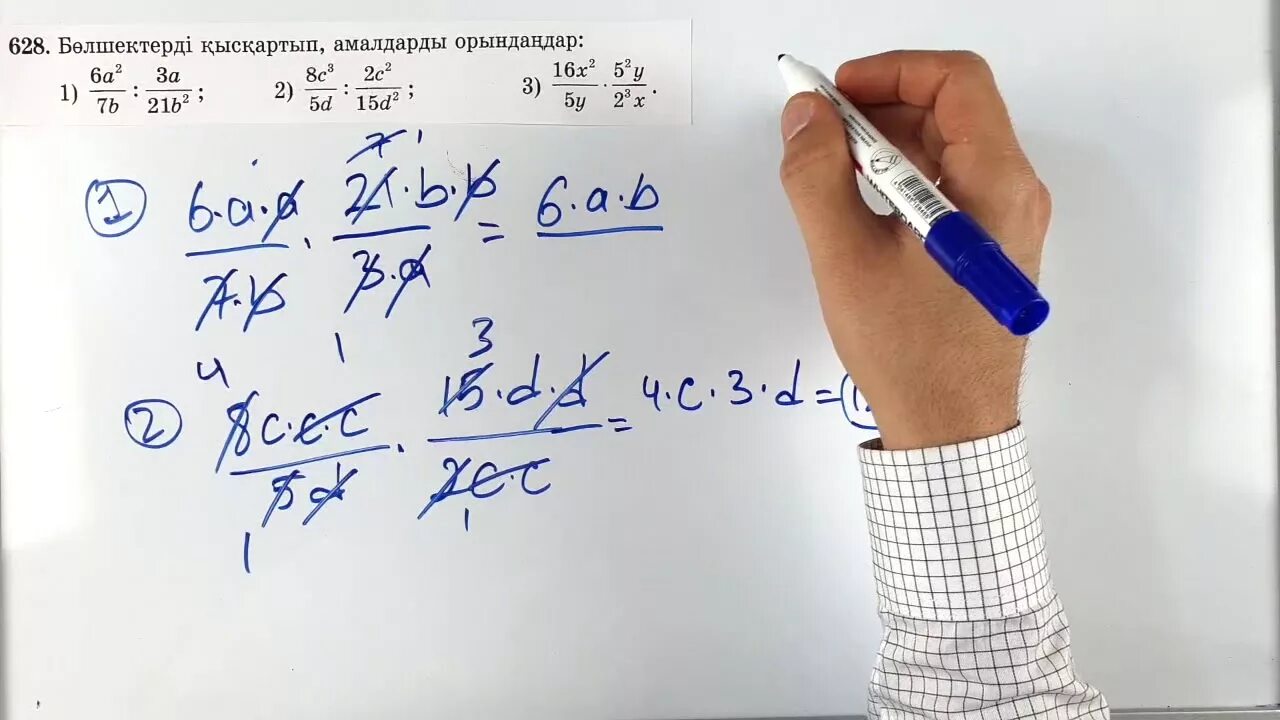 628. Бөлшектерді қысқартып, амалдарды орындаңдар:
1) 6a²/7b : 3a/21b² ; 2) 8c³/5d : 2c²/15d² ; 3) 16x²/5y · 5²y/2³x .
7 1
1 6·a·a/7·b · 21·b·b/3·a = 6·a·b
1
4 3
2 8c·c·c/5d · 15·d·d/2c·c = 4·c·3·d =
1 1